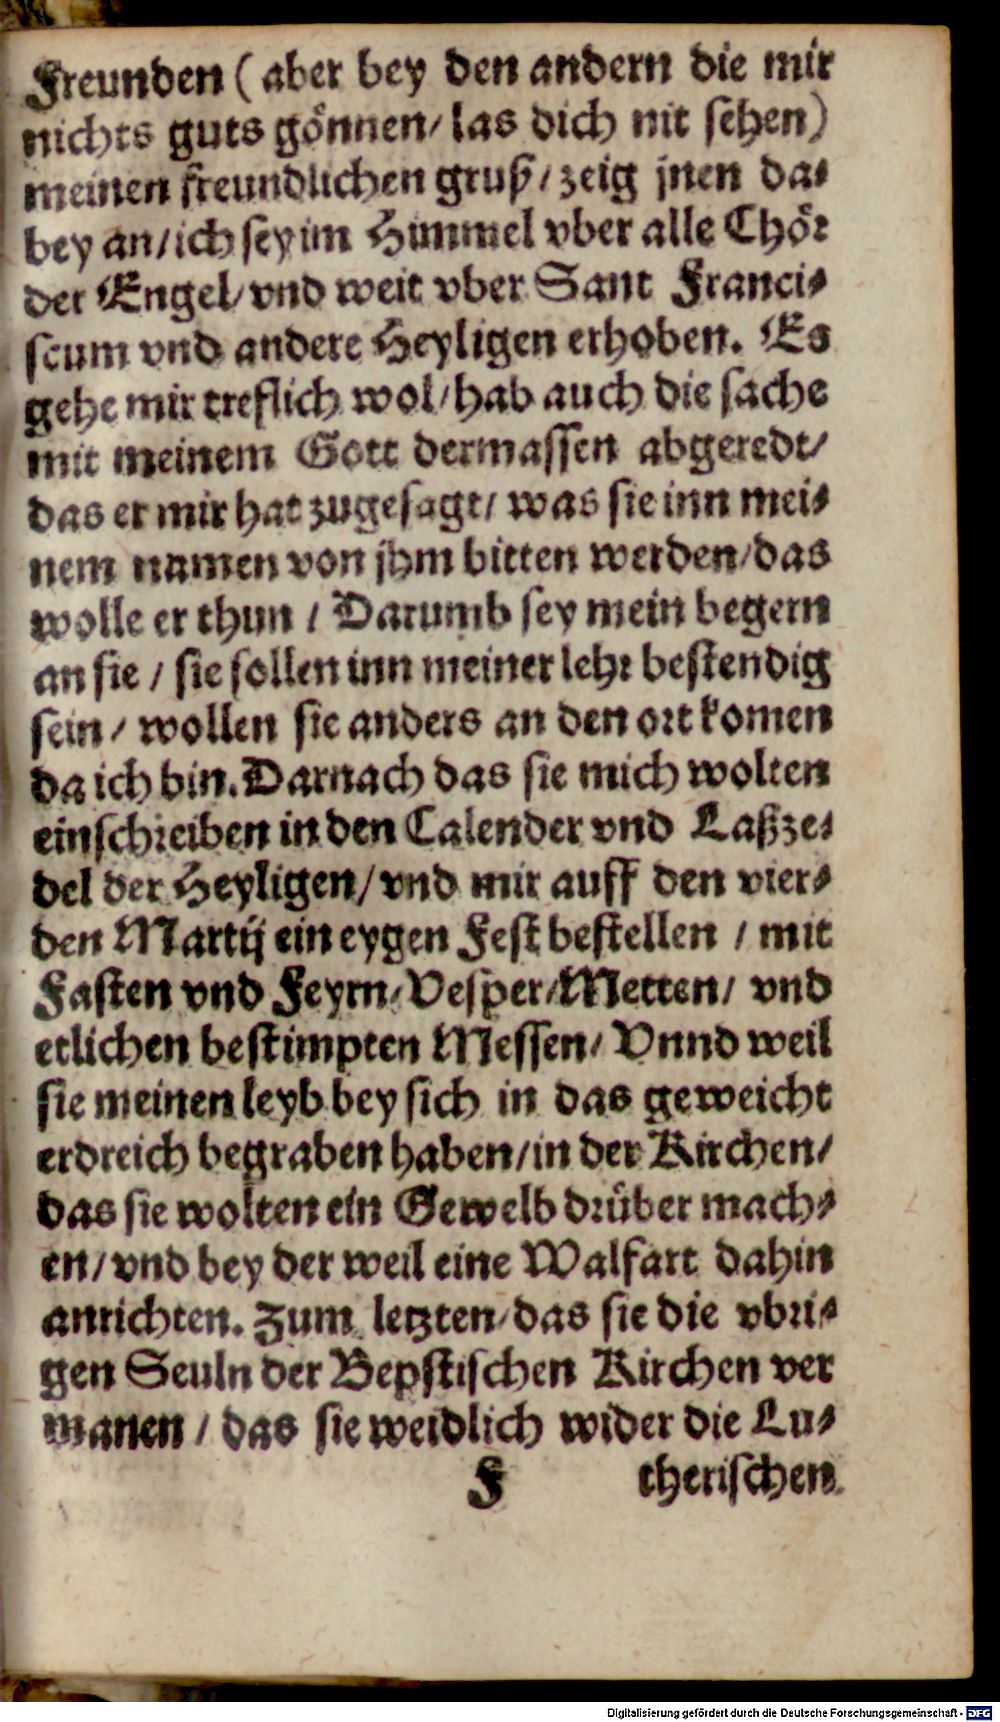 Freunden (aber bey den andern die mir
nichts guts gönnen/ las dich nit sehen)
meinen freundlichen gruß/ zeig jnen da-
bey an/ ich sey im Himmel vber alle Chör
der Engel/ vnd weit vber Sant Franci-
scum vnd andere Heyligen erhoben. Es
gehe mir treflich wol/ hab auch die sache
mit meinem Gott dermassen abgeredt/
das er mir hat zugesagt/ was sie inn mei-
nem namen von jhm bitten werden/ das
wolle er thun / Darumb sey mein begern
an sie / sie sollen inn meiner lehr bestendig
sein / wollen sie anders an den ort komen
da ich bin. Darnach das sie mich wolten
einschreiben in den Calender vnd Laßze-
del der Heyligen/ vnd mir auff den vier-
den Martij ein eygen Fest bestellen / mit
Fasten vnd Feyrn/ Vesper/ Metten/ vnd
etlichen bestimpten Messen/ Vnnd weil
sie meinen leyb bey sich in das geweicht
erdreich begraben haben/ in der Kirchen/
das sie wolten ein Gewelb drüber mach-
en/ vnd bey der weil eine Walfart dahin
anrichten. Zum letzten/ das sie die vbri-
gen Seuln der Bepstischen Kirchen ver
manen / das sie weidlich wider die Lu-
F therischen
Digitalisierung gefördert durch die Deutsche Forschungsgemeinschaft - DFG